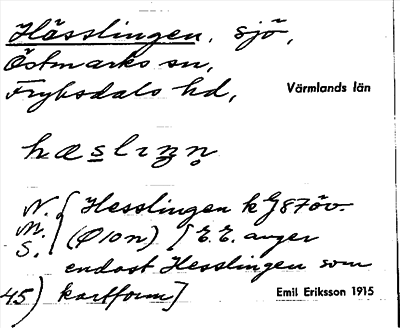 Hässlingen, sjö,
Östmarks sn,
Fryksdals hd, Värmlands län
hæslɪŋn̥
N. Hesslingen k G87öv.
M. (Ø10n) [E.E. anger
S. endast Hesslingen som
45) kartform]
Emil Eriksson 1915